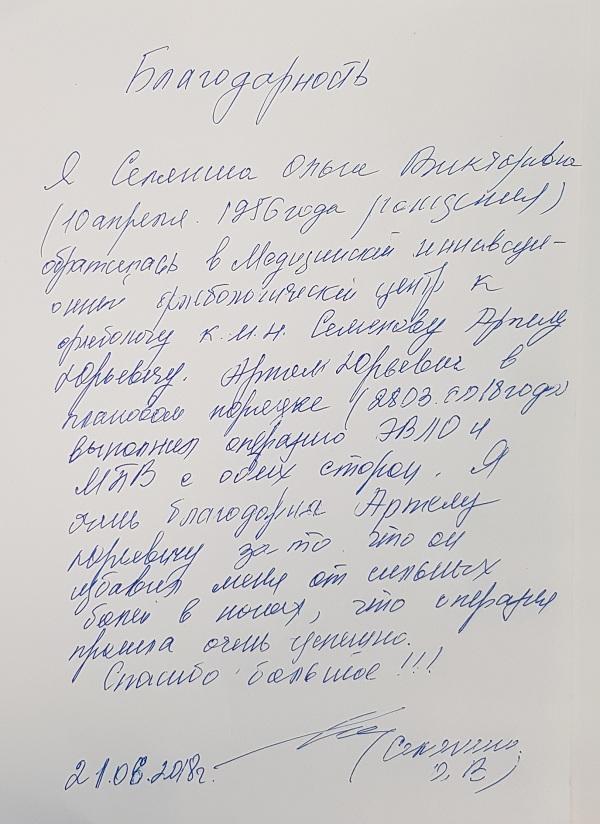 Благодарность
Я Ольга Викторовна
(10 апреля 1986 года рождения)
обратилась в Медицинский инноваци-
онный флебологический центр к
флебологу к.м.н. Семенову Артему
Юрьевичу. Артем Юрьевич в
плановом порядке (28.03.2018 года)
выполнил операцию ЭВЛО и
МПВ с обеих сторон. Я
очень благодарна Артему
Юрьевичу за то что он
избавил меня от сильных
болей в ногах, что операция
прошла очень успешно.
Спасибо большое!!!
21.06.2018г.
О. В)